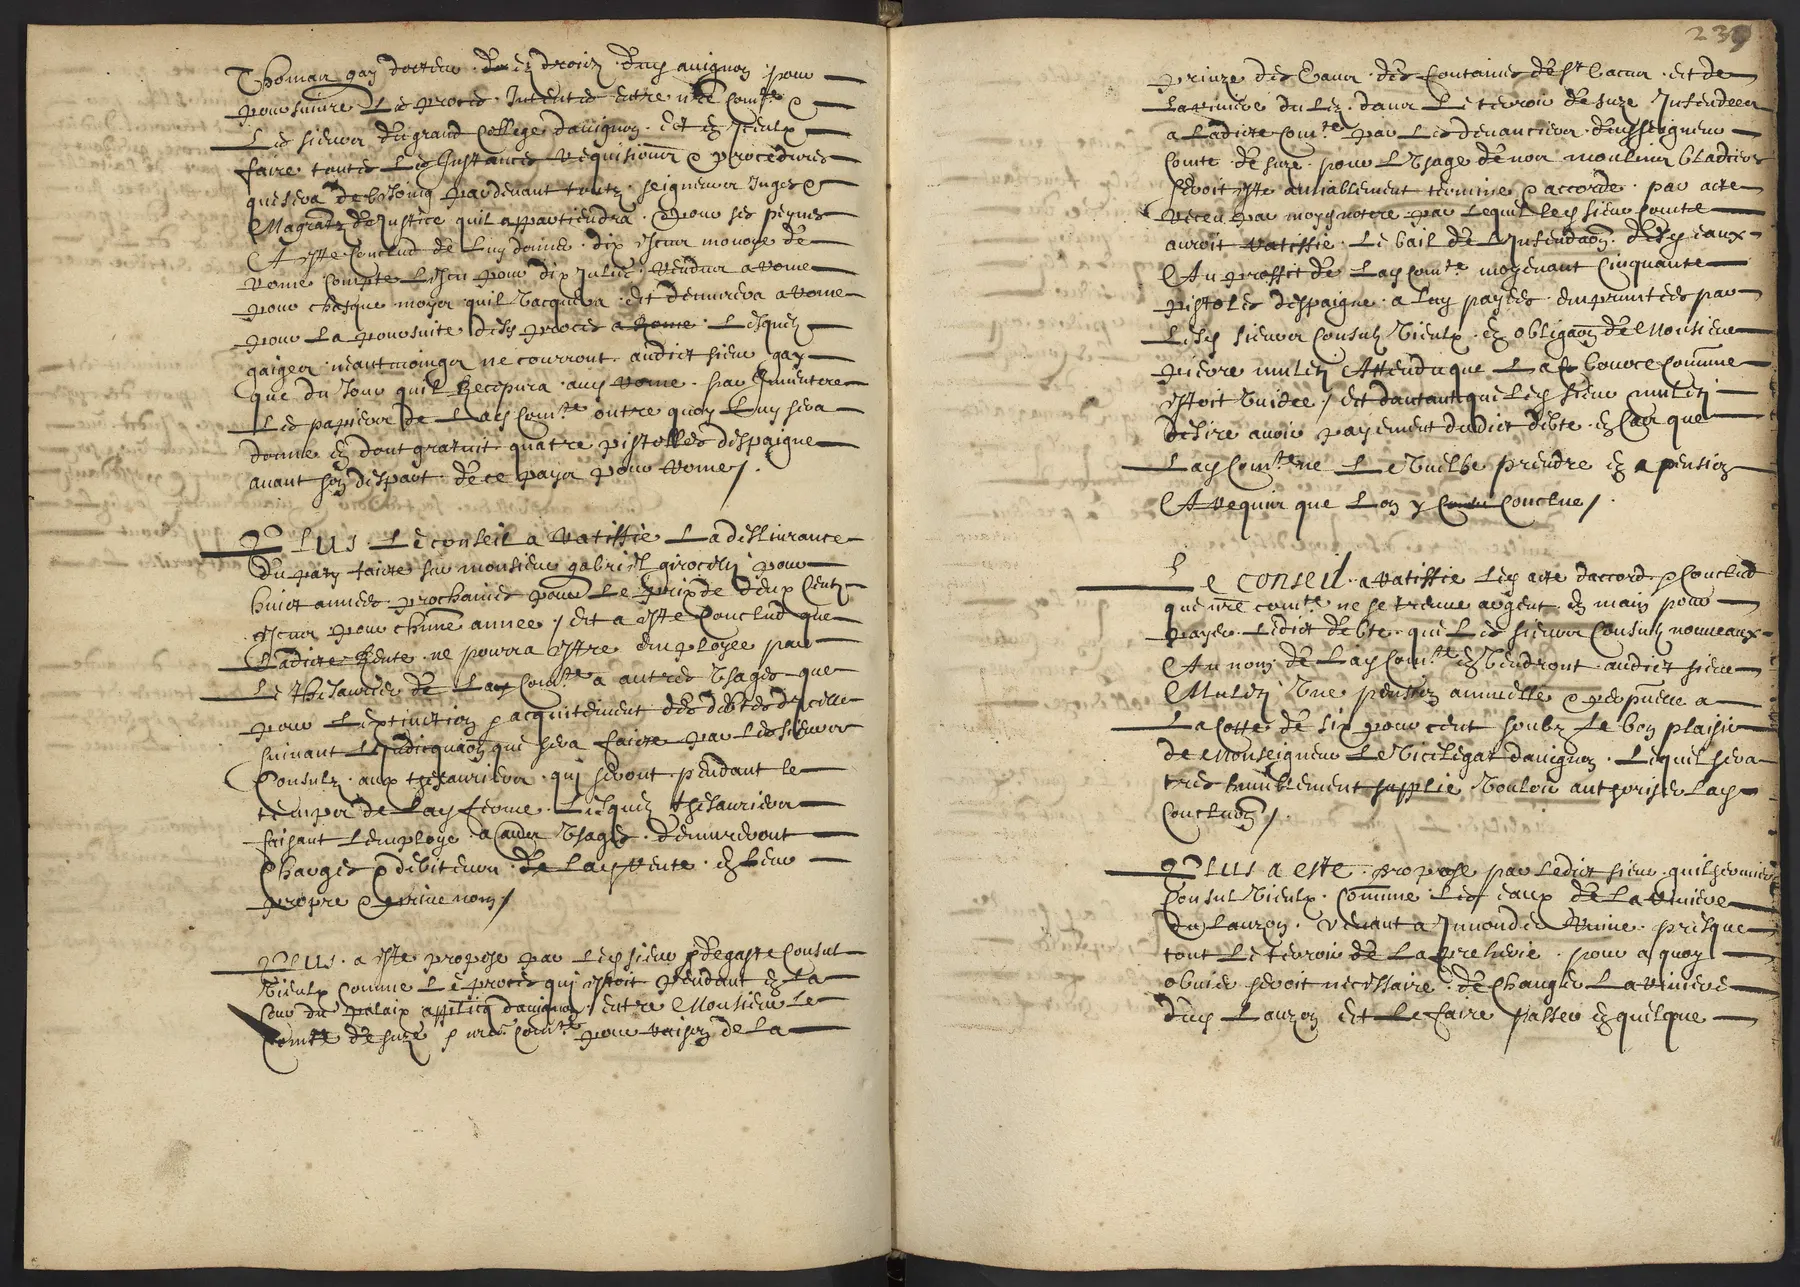 Thomas gay docteur ez droictz dud avignon pour
poursuivre les proces intentes entre nre comte &
les sieurs du grand college davignon et en iceulx
faire toutes les instances requisitions & procedures
que sera de besoing pardevant toutz seigneurs juges &
Magratz de justice quil appartiendra & pour ses peynes
A este conclud de luy donner dix escus monoye de
rome compte lescu pour dix jules rendus a rome
pour chasque moys quil vacquera et demurera a rome
pour la poursuite desd proces a Rome lesquelz
gaiges neantmoingz ne courront audict sieur gay
que du jour quil Recepvra aud rome par inventere
les papiers de lad comte outre quoy luy sera
donne en dont gratuit quatre pistolles despaigne
avant son despart de ce pays pour rome /.
Plus le conseil a ratiffie la deslivrance
du faire sur monsieur gabriel girocelli pour
huict annees prochaines pour le prix de deux centz
escus pour chune annee / et a este conclud que
ladicte Rente ne pourra estre employee par
le thesaurier de lad comte a autres usages que
pour lextinction & acquitement des debtes dicelle
suivant lindicquaon que sera faicte par les sieurs
Consulz aux thesauriers qui seront pendant le
temps de lad ferme lesquelz thesauriers
faisant lemploye a autres usages demureront
charges & debiteurs de lad rente en leur
propre & prive nom /
Plus a este propose par led sieur degaste consul
vieulx comme le proces qui estoit pendant en la
cour du palaix applicq davignon entre Monsieur le
Comte de suze & nre comte pour raison de la
239
prinze des eaux des fontaines de st baux et de
la riviere du lez dans le terroir de suze
a ladicte comte par les devanciers dud seigneur
comte de suze pour lusage de nos moulins bladiers
seroit este amiablement termine & accorde par acte
receu par moy notere par lequel led sieur comte
auroit ratiffie le bail de desd eaux
Au proffit de lad comte moyenant cinquante
pistoles despaigne a luy payees empruntees par
lesd sieurs consulz vieulx en obligaon de Monsieur
pierre muleti Attendu que la bource comune
estoit vuidee / et dautant que led sieur muleti
desire avoir payement dudict debte en cas que
lad comte ne le vuelhe prendre en a pension
A requis que lon y conclue /.
Le conseil a ratiffie led acte daccord & conclud
que nre comte ne se treuve argent en main pour
payer ledict debte que les sieurs consulz nouveaux
Au nom de lad comte vendront audict sieur
Muleti une pension annuelle & perpetuelle a
la cotte de six pour cent soubz le bon plaisir
de Monseigneur le vicelegat davignon lequel sera
tres humblement supplie vouloir authoriser lad
conclusion /.
Plus a este propose par ledict sieur guilhermier
consul vieulx comme les eaux de la riviere
du lauzon venant a inonder Ruine presque
tout le terroir de la prelherie pour a quoy
obvier seroit necessaire de changer la riviere
dud lauzon et le faire passer en quelque